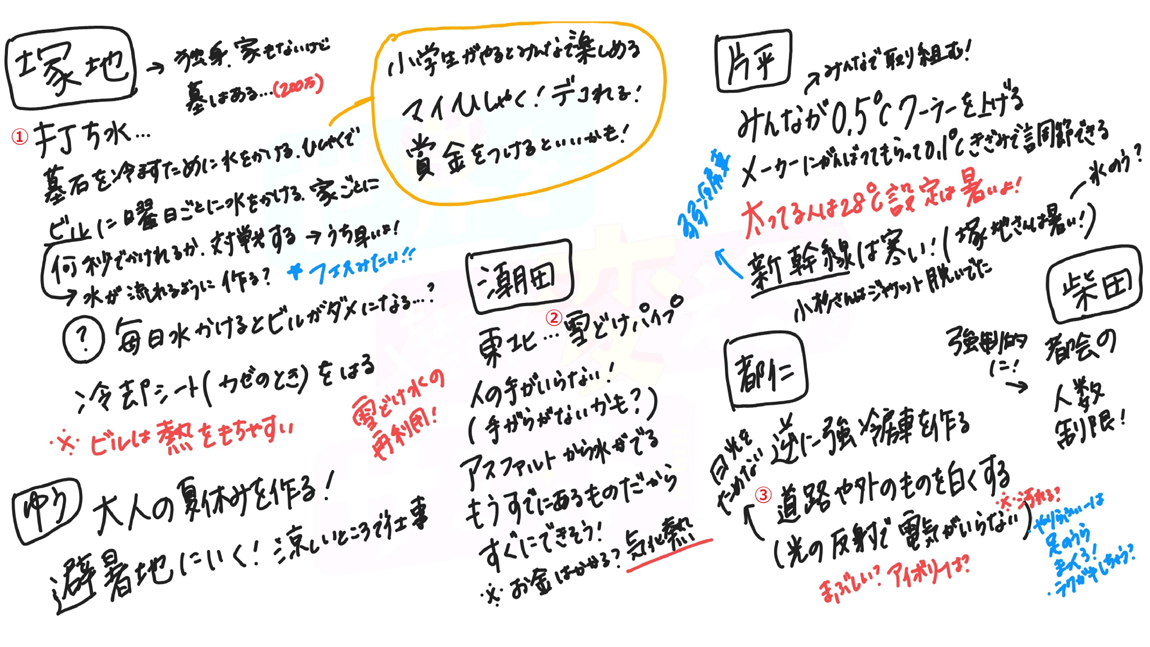 塚地
→ 独身、家もないけど
墓はある…(200万)
① 打ち水…
墓石を冷ますために水をかける、ひしゃくで
ビルに曜日ごとに水をかける、家ごとに
何秒でかけれるか、対戦する → うち早いよ!
→ 水が流れるように作る? ★フェスみたい!!
? 毎日水かけるとビルがダメになる…?
冷却シート(カゼのとき)をはる
※ビルは熱をもちやすい
小学生がやるとみんなで楽しめる
マイひしゃく!デコれる!
賞金をつけるといいかも!
ゆう
大人の夏休みを作る!
避暑地にいく!涼しいところで仕事
潮田
東北… ②雪どけパイプ
人の手がいらない!
(手がらがないかも?)
アスファルトから水がでる
もうすでにあるものだから
すぐにできそう!
※お金はかかる? 気化熱
雪どけ水の
再利用!
片平
→ みんなで取り組む!
みんなが0.5℃クーラーを上げる
メーカーにがんばってもらって0.1℃きざみで調節できる
太ってる人は28℃設定は暑いよ!
氷のう?
新幹線は寒い!(塚地さんは暑い!)
小杉さんはジャケット脱いでた
弱冷房車
都仁
逆に強冷房車を作る
③ 道路や外のものを白くする
(光の反射で電気がいらない)
日光を
ためない
※汚れる?
まぶしい?アイボリーは?
足のうら
まっくろ!
柴田
都会の
人数
制限!
強制的
に!
→